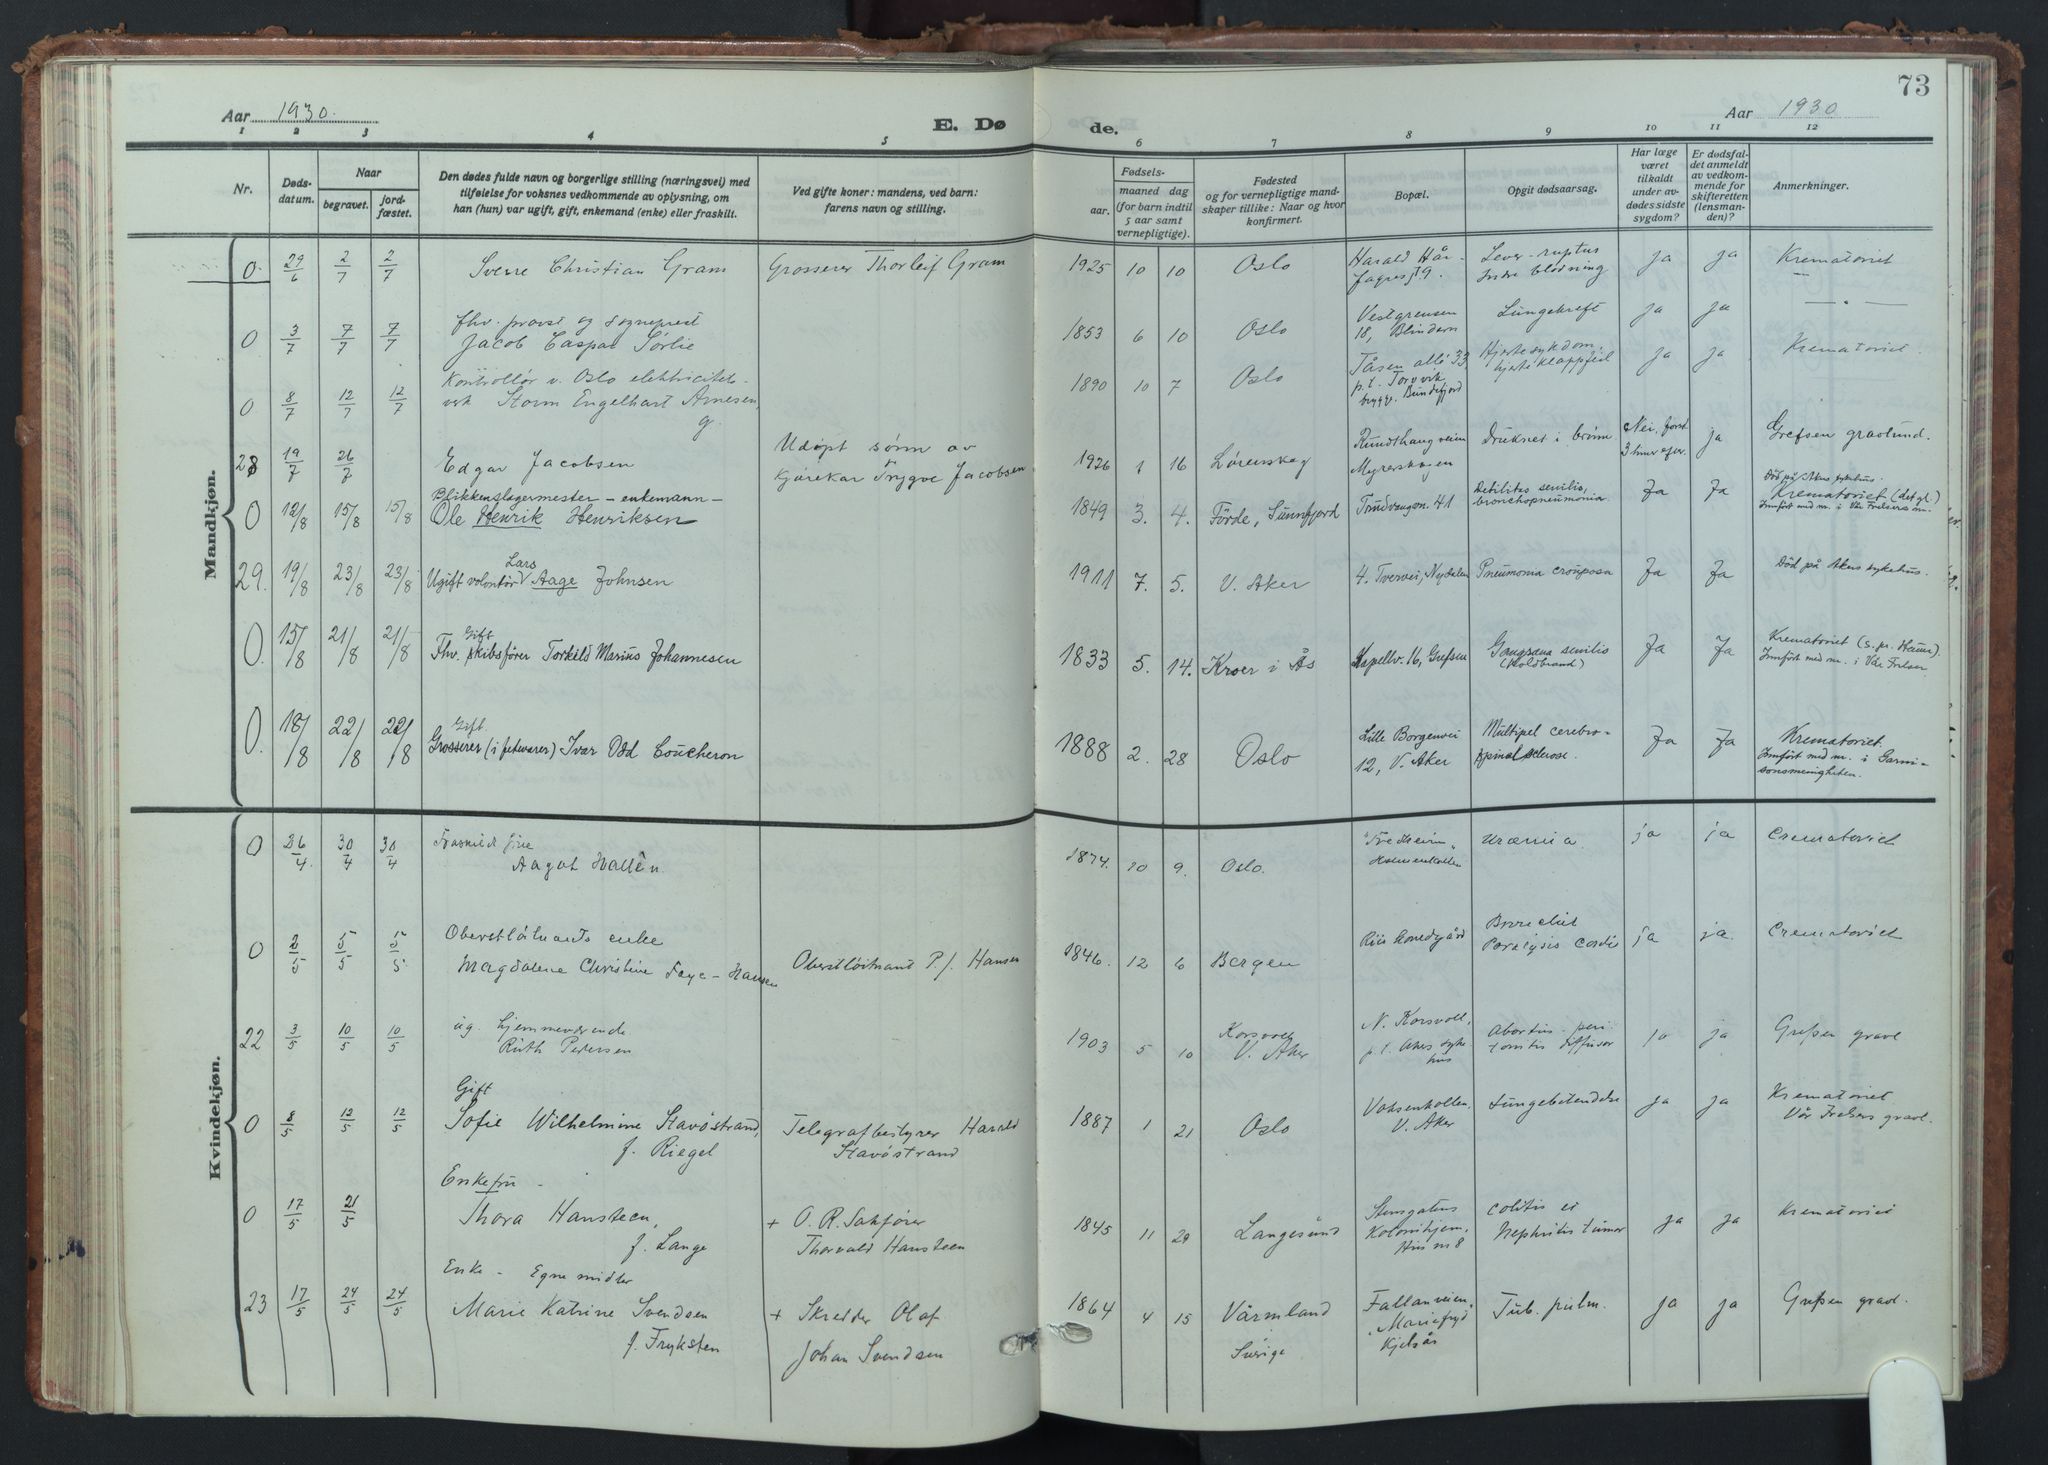 73
Aar 1930. E. Dø de. Aar 1930
1 2 3 4 5 6 7 8 9 10 11 12
Nr. Dødsdatum. Naar begravet. jordfæstet. Den dødes fulde navn og borgerlige stilling (næringsvei) med tilføielse for voksnes vedkommende av oplysning, om han (hun) var ugift, gift, enkemand (enke) eller fraskilt. Ved gifte koner: mandens, ved barn: farens navn og stilling. Fødsels- aar. maaned dag (for barn indtil 5 aar samt vernepligtige). Fødested og for vernepligtige mandskaper tillike: Naar og hvor konfirmert. Bopæl. Opgit dødsaarsag. Har læge været tilkaldt under avdødes sidste sygdom? Er dødsfaldet anmeldt av vedkommende for skifteretten (lensmanden)? Anmerkninger.
Mandkjøn.
0. 29/6 2/7 2/7 Sverre Christian Gram Grosserer Thorleif Gram 1925 10 10 Oslo Harald Hårfagresgt 9. Lever-ruptus Indre blödning ja ja Krematoriet
0 3/7 7/7 7/7 fhv. provst og sogneprest Jacob Caspar Sørlie 1853 6 10 Oslo Vestgrensen 18, Blindern Lungekreft ja ja — " —
0 8/7 12/7 12/7 Kontrollør v. Oslo elektricitetsverk Storm Engelhart Arnesen, g. 1890 10 7 Oslo Tåsen allé 33 p.t. Torvvik brygge. Bundefjord Hjertesykdom, hjerteklappfeil ja ja Krematoriet.
28 19/7 26/7 Edgar Jacobsen Udöpt sönn av kjörekar Trygve Jacobsen 1926 1 16 Lörenskog Rundthaugveien Myrerskogen Druknet i brönn Nei, først 3 timer efter ja Grefsen gravlund.
0 12/8 15/8 15/8 Blikkenslagermester – enkemann – Ole Henrik Henriksen 1849 3. 4. Förde, Sunnfjord Trudvangvn. 41 Debilitas senilis, bronchopneumonia. Ja Ja Död på Akers sykehus. Krematoriet (det gl.) Innfört med nr. i Vår Frelsers m.
29. 19/8 23/8 23/8 Ugift volontör Lars Aage Johnsen 1911 7. 5. V. Aker 4. Tvervei, Nydalen Pneumonia crouposa Ja Ja Död på Akers sykehus.
0. 15/8 21/8 21/8 Gift Fhv. skibsfører Torkild Marius Johannesen 1833 5. 14. Kroer i Ås Kapellv. 16, Grefsen Gangræna senilis (Koldbrand) Ja Ja Krematoriet (s. pr. Haun). Innfört med nr. i Vår Frelser
0. 18/8 22/8 22/8 Gift Grosserer (i fetvarer) Ivar Odd Coucheron 1888 2. 28 Oslo Lille Borgenvei 12, V. Aker Multipel cerebrospinal sclerose. Ja Ja Krematoriet. Innfört med nr. i Garnisonsmenigheten.
Kvindekjøn.
0 26/4. 30/4 30/4 Fraskildt frue Aagot Hallèn. 1874. 10 9. Oslo. "Fredheim" Holmenkollen Uræmia. ja ja Crematoriet
0 2/5 5/5 5/5 Oberstløitnants enke Magdalene Christine Faye-Hansen Oberstløitnant P. J. Hansen 1846. 12 6 Bergen Riis hovedgård Paralysis cordis ja ja. Crematoriet
22 3/5 10/5 10/5 ug. hjemmeværende Ruth Petersen 1903 5 10 Korsvoll V. Aker N. Korsvoll, p.t. Akers sykehus Abortus-peritonitis diffusa ja ja Grefsen gravl
0 8/5 12/5 12/5 Gift Sofie Wilhelmine Stavöstrand, f. Riegel Telegrafbestyrer Harald Stavöstrand 1887 1 21 Oslo Voksenkollen, V. Aker Lungebetendelse ja ja Krematoriet Vår Frelsers gravl.
0 17/5 21/5 Enkefru – Thora Hansteen, f. Lange + O. R. Sakfører Thorvald Hansteen 1845 11 29 Langesund Stensgatens Kolonihjem, Hus nr 8 colitis et Nephritis tumor ja ja Krematoriet
23 17/5 24/5 24/5 Enke – Egne midler Marie Katrine Svendsen f. Fryksten + Skredder Olaf Johan Svendsen 1864 4 15 Värmland Sverige Fallanveien, "Mariefryd Kjelsås Tub. pulm. ja ja Grefsen gravl.